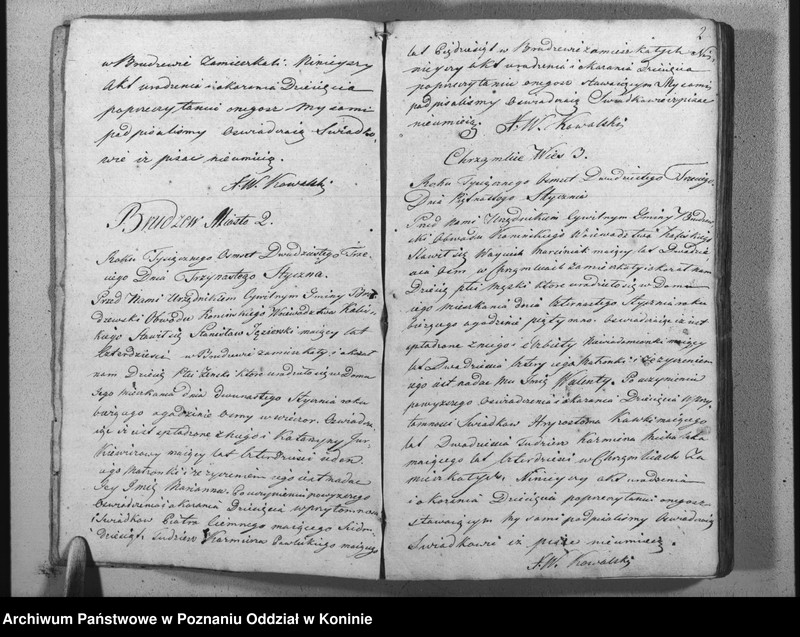 w Brudzewie zamieszkali. Ninieyszy
Akt urodzenia i okazania Dziecięcia
po przeczytaniu onegosz My sami
podpisaliśmy Oświadczaią Świadko-
wie iż pisac nieumieią.
A. W. Kowalski
Brudzew Miasto 2.
Roku Tysiącznego Osmset Dwudziestego Trze-
ciego Dnia Trzynastego Stycznia.
Przed Nami Urzędnikiem Cywilnym Gminy Bru-
dzewski Obwodu Konińskiego Wojewodztwa Kalis-
kiego Stawił się Stanisław maiący lat
Czterdzieści w Brudzewie zamieszkały i okazał
nam Dziecię Płci Żeński które urodziło się w Domu
Jego mieszkania dnia dwunastego Stycznia roku
bieżącego o godzinie osmy w wieczor. Oswiadcza-
iąc iż iest spłodzone z niego i Katarzyny Jur-
kiewiczowy maiący lat trzydzieści ieden
iego Małżonki i że życzeniem iego iest nadać
Jey Imię Marianna. Po uczynieniu powyższego
Oświadczenia i okazania Dziecięcia w przytomności
Świadków Piotra Ciemnego maiącego Siedm-
dziesiąt tudzież Kazmierza Pawluckiego maiącego
2
lat Pięćdziesiąt w Brudzewie zamieszkałych Ni-
nieyszy akt urodzenia i okazania Dziecięcia
po przeczytaniu onegosz stawaiącym My sami
podpisaliśmy Oswiadczaią Świadkowie iż pisac
nieumieią.
A. W. Kowalski
Wieś 3.
Roku Tysiącznego Osmset Dwudziestego Trzeciego
Dnia Piętnastego Stycznia
Przed Nami Urzędnikiem Cywilnym Gminy Brudzew-
ski Obwodu Konińskiego Wojewodztwa Kaliskiego
Stawił się Woyciech Marciniak maiący lat Dwadzie-
ścia Osm w zamieszkały i okazał nam
Dziecię płci Męski które urodziło się w Domu
iego mieszkania dnia Czternastego Stycznia roku
bieżącego o godzinie piąty rano. Oswiadczaiąc iż iest
spłodzone z niego i Elżbiety maiący
lat Dwadzieścia cztery iego Małżonki i że życzeniem
iego iest nadać Mu Imię Walenty. Po uczynieniu
powyższego Oświadczenia i okazania Dziecięcia w przy-
tomności Świadków Hryzostoma Kawki maiącego
lat Dwadzieścia tudzież Kazmirza
maiącego lat trzydzieści w za-
mieszkałych. Ninieyszy akt urodzenia
i okazania Dziecięcia po przeczytaniu onegosz
stawaiącym My sami podpisaliśmy Oświadczaią
Świadkowie iż pisac nieumieią.
A. W. Kowalski
Archiwum Państwowe w Poznaniu Oddział w Koninie